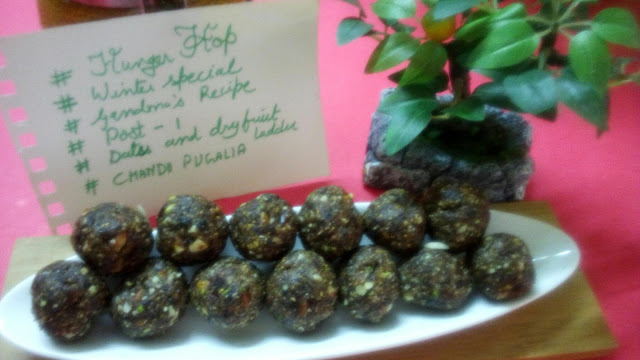 # Hunger Hop
# Winter special
# Grandma's Recipe
# Post - 1
# Dates and dryfruit Laddu
# CHANDA PUGALIA